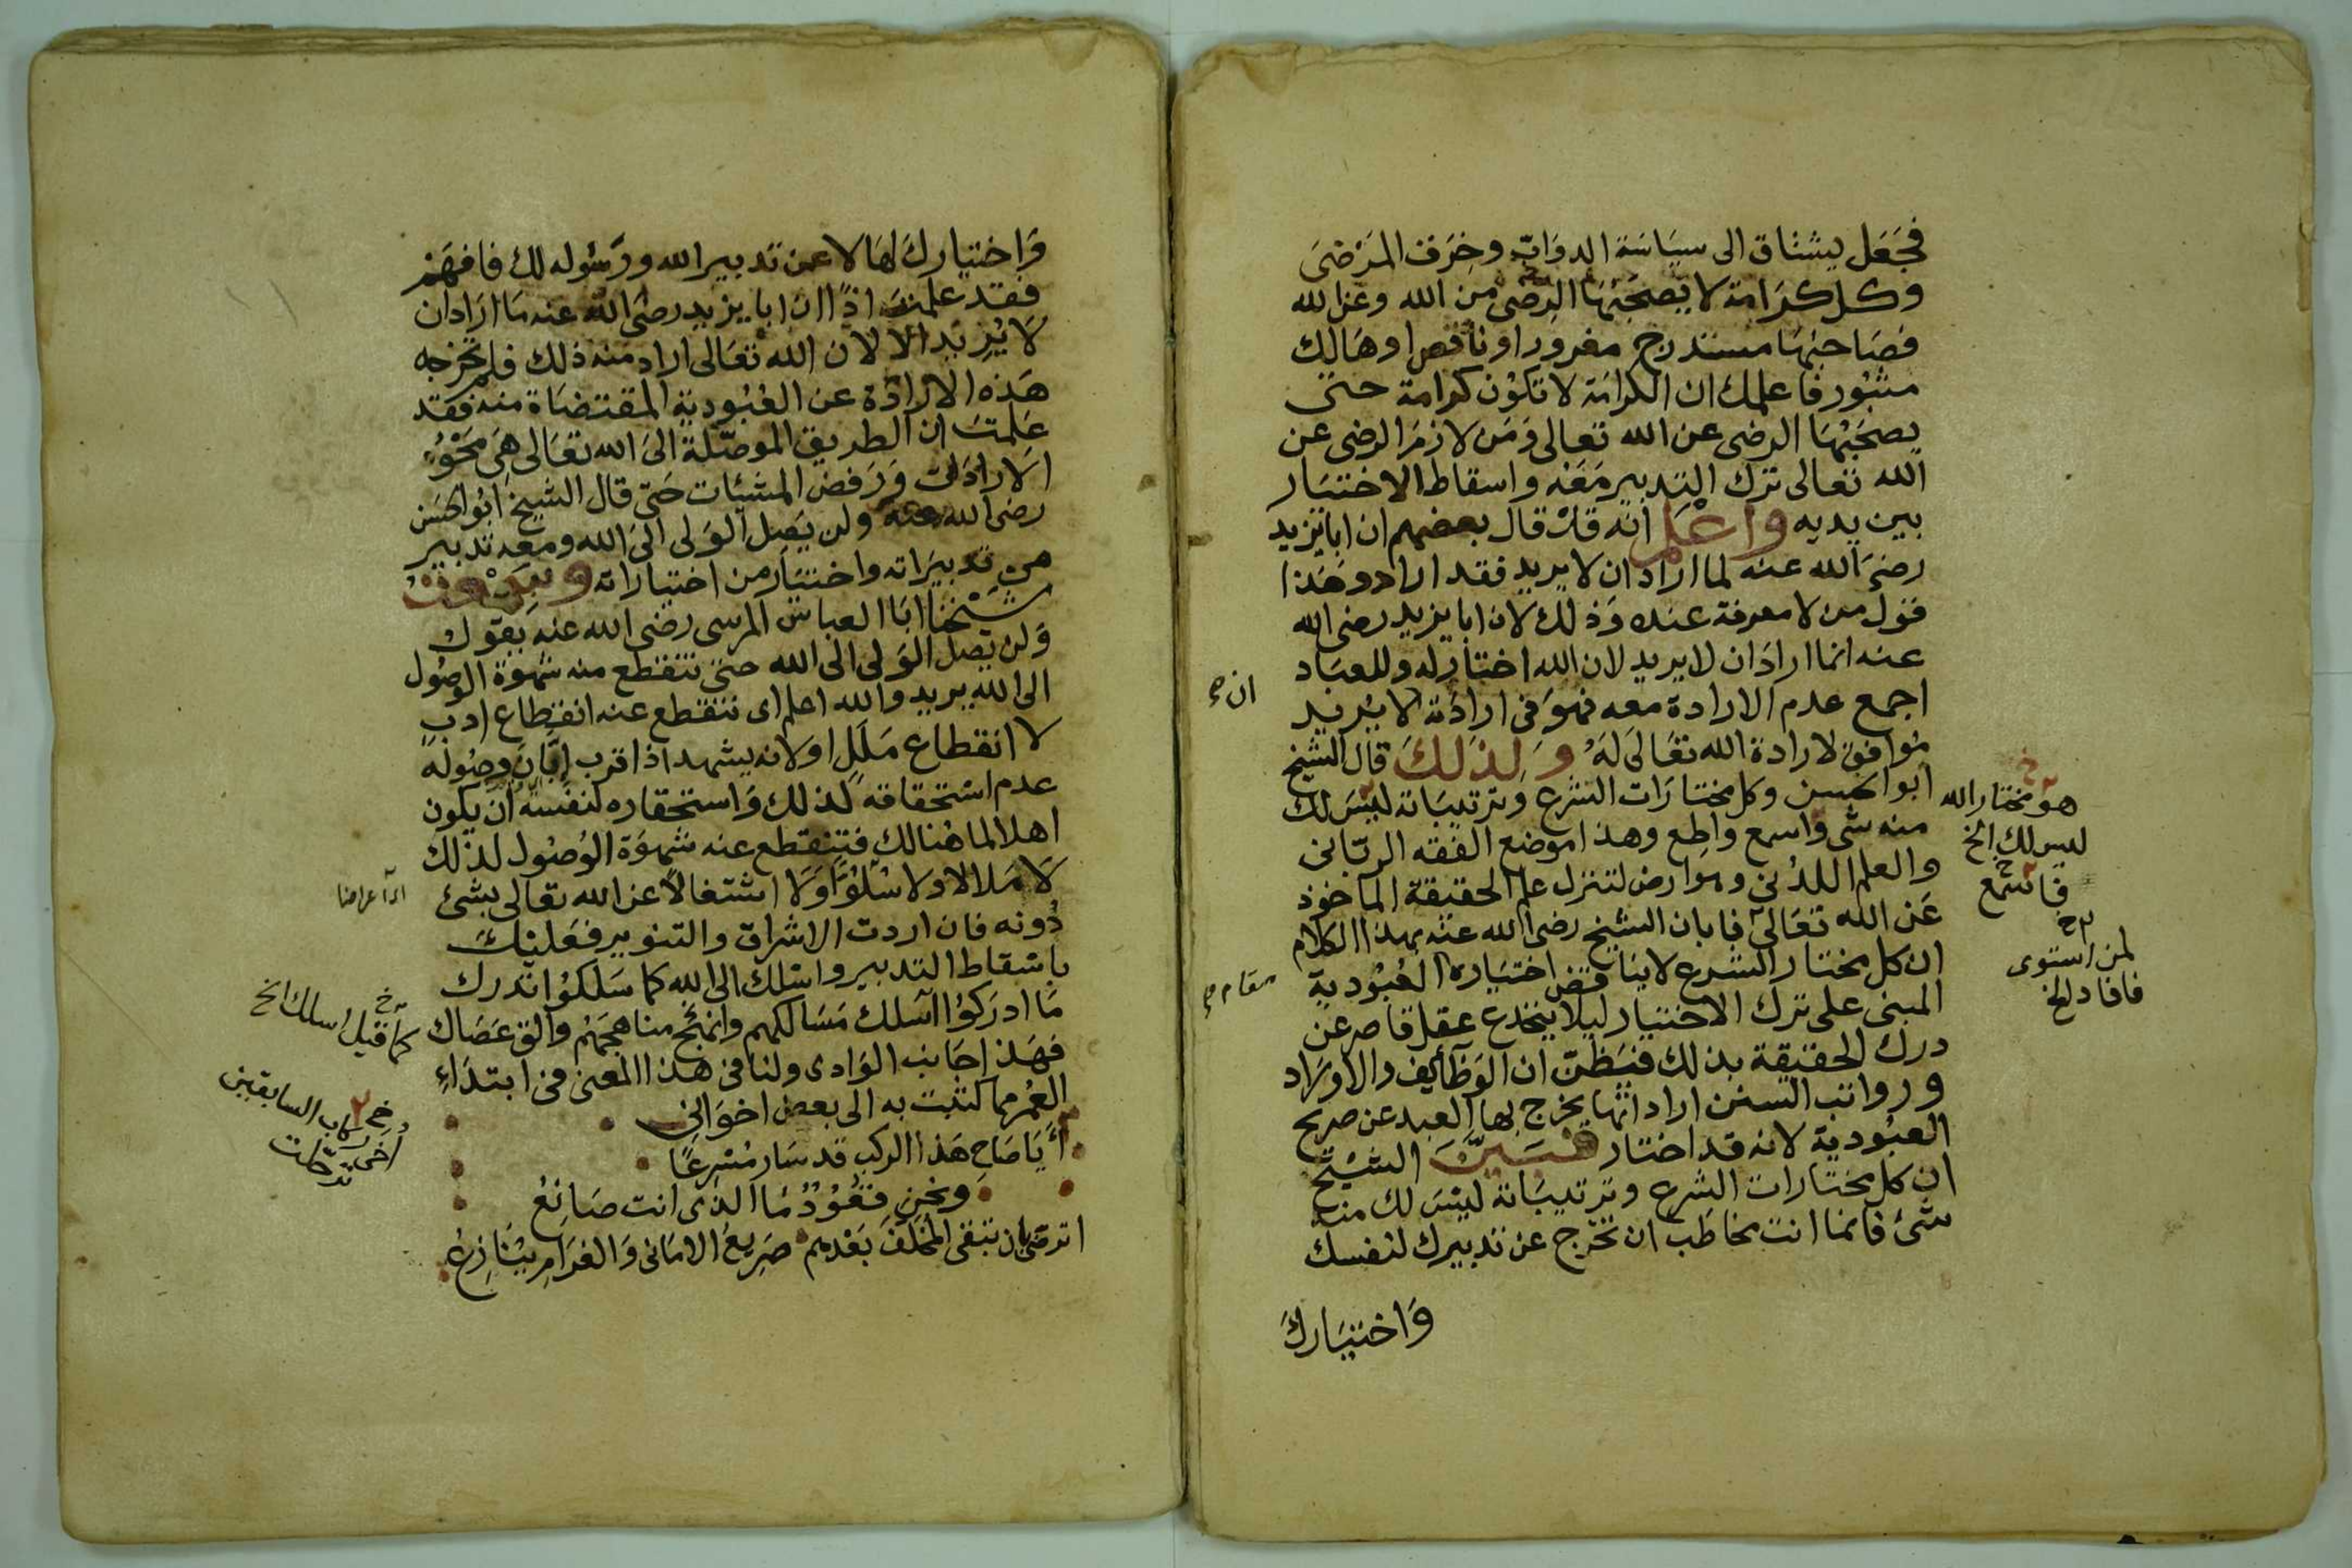 فجعل يشتاق الى سياسة الدوابّ وخِرَف المَرْضىَ
وكل كرَامة لا يَصحَبُهَا الرضى من الله وعن الله
فصَاحبهَا مستدرج مغرورا وناقص او هَالِك
مثبُور فاعلمك ان الكرامَة لا تكوُن كرامة حتى
يصحَبُهَا الرضى عن الله تعالى وَمَن لازمَ الرضى عن
الله تعالى ترك التدبير مَعَهْ واسقاط الاختيَار
بين يديه واعْلم انه قدْ قال بعضهم ان ابا يزيد
رضىَ الله عنه لما اراد ان لا يريد فقد اراد وهَذا
قول من لا معرفة عنده وَذلك لان ابا يزيد رضى الله
عنه انما ارادَ ان لا يريد لان الله اختار له وللعبَاد
اجمع عدم الارادة معه فهوَ فى ارادَته لا يُرْيد
مُوافق لارادة الله تعَالىَ لهُ وَلذلكَ قال الشيخ
ابو الحسن وكل مختارَات الشرع وترتيبَاته ليْسَ لك
منه شى واسمع واطِع وهذا موضع الفقه الربّانى
والعلم اللدُنى وهوارض لتنزل علم الحقيقة الماخوذ
عَن الله تعَالىَ فابان الشيخ رضى الله عنه بهذا الكلام
ان كل مختار الشرع لا يناقض اختيَاره العُبُودية
المبنى على ترك الاختيار ليلا ينخدع عقل قاصر عن
درك الحقيقة بذلك فيَظنّ ان الوَظآئف والاورَاد
ورواتب السنن ارادتها يخرج بها العبد عن صريح
العبُودية لانه قد اختار فبيَّنَ الشيْخ
ان كل مختارات الشرع وترتيبَاته ليْسَ لك منه
شَىْ فانما انت مخاطَب ان تخرُج عن تدبيرك لنفسك
وَاختيَارِكَ
ان صح
مقام صح
هو مختار الله
ليس لك الخ
فاسمع
لمن استوى
فافاد الخ
وَاختيارِكَ لهَا لا عن تَدبير الله ورَسُوله لك فافهَمْ
فقد علمتَ اذًا ان ابا يزيد رضىَ الله عنه مَا ارَاد ان
لا يُرْيدَ الا لان الله تعَالى اراد منه ذلك فلم تخرجه
هَذه الارادَة عن العُبُودية المقتضَاة منه فقد
عَلمتَ ان الطريق الموصّلة الىَ الله تعَالى هِىَ مَحْوُ
الارادَات وَرَفض المشئات حَتّى قال الشيخ ابُو الحَسَن
رضى الله عنه ولن يَصِل الوَلى الىَ الله ومعه تَدبير
من تدبيَراته واختيَار من اختياراته وَسَمعْتُ
شيْخنَا ابَا العباس المرسى رضى الله عنه يَقول
وَلن يَصل الوَلى الى الله حتىّ تنقطع منه شهوَة الوصُول
الى الله يريد والله اعلم اى تنقطع عنه انقِطاع ادبٍ
لا انقطاع مَلَلٍ او لانه يشهد اذا قرب اِبَّانَ وصُوله
عدم اسْتحقاقه لذلك وَاستحقاره لنفسه ان يكون
اهلا لما هُنالك فتنقطع عنه شهوَة الوُصُول لذلك
لا مَلالا ولا سْلوًّا وَلا اشتغالاً عن الله تعالى بشئ
دُونه فان اردت الاشراق والتنوير فعَليْكَ
باسْقاط التدبير واسْلك الى الله كما سَلكُوا تدرك
مَا ادرَكوُا اسلك مَسَالكهم وانهَجْ مناهجَهُم والق عَصَاك
فهَذا جَانب الوَادى ولنا فى هذا المعنى فى ابتدَاءِ
العُمُر مما كتبت به الى بعض اخوَانى
أيَا صَاحِ هَذا الركب قد سَار مُسْرعًا
ونحن قعُوُدٌ مَا الذى انت صَانِعُ
اترضى بان تبقى المُخَلَّفَ بَعْدهم صَريعُ الامَانى وَالغرَامِ يُنَازِعُ
اى اعراضا
كما قيل اسلك الخ
ركاب السابقين